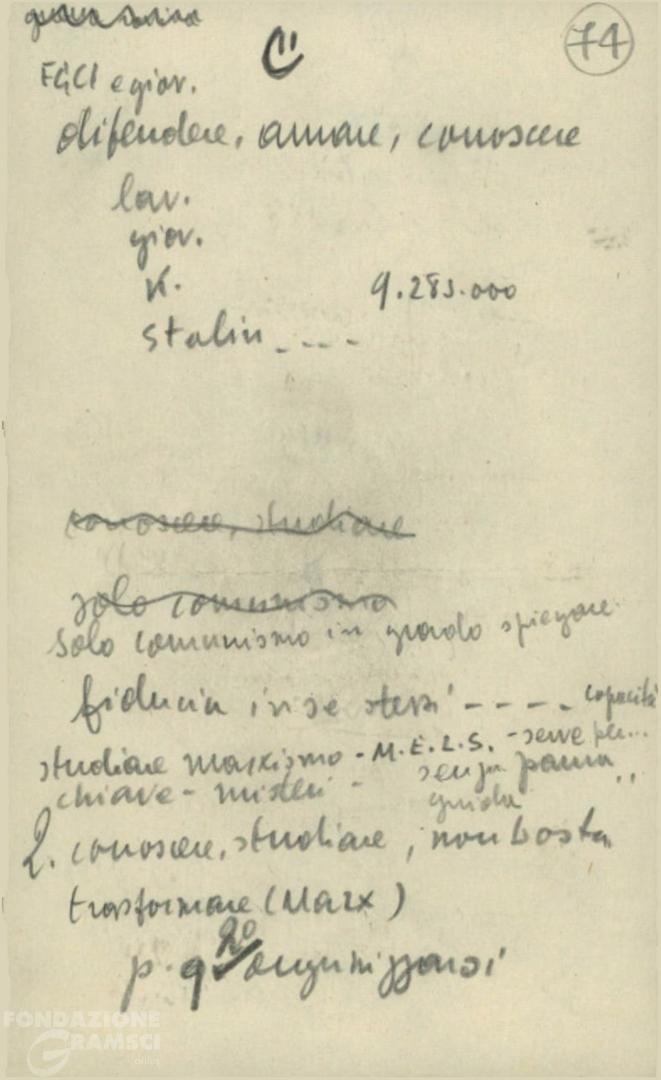 74
C
FGCI e giov.
difendere, amare, conoscere
lav.
giov.
K. 9.283.000
Stalin ----
conoscere, studiare
solo comunismo
Solo comunismo in grado spiegare
fiducia in se stessi ---- capacità
studiare marxismo - M.E.L.S. - serve per...
chiave - misteri - senza paura
guida "
2. conoscere, studiare, non basta
trasformare (Marx)
p. q. 2° organizzarsi
FONDAZIONE
GRAMSCI
onlus